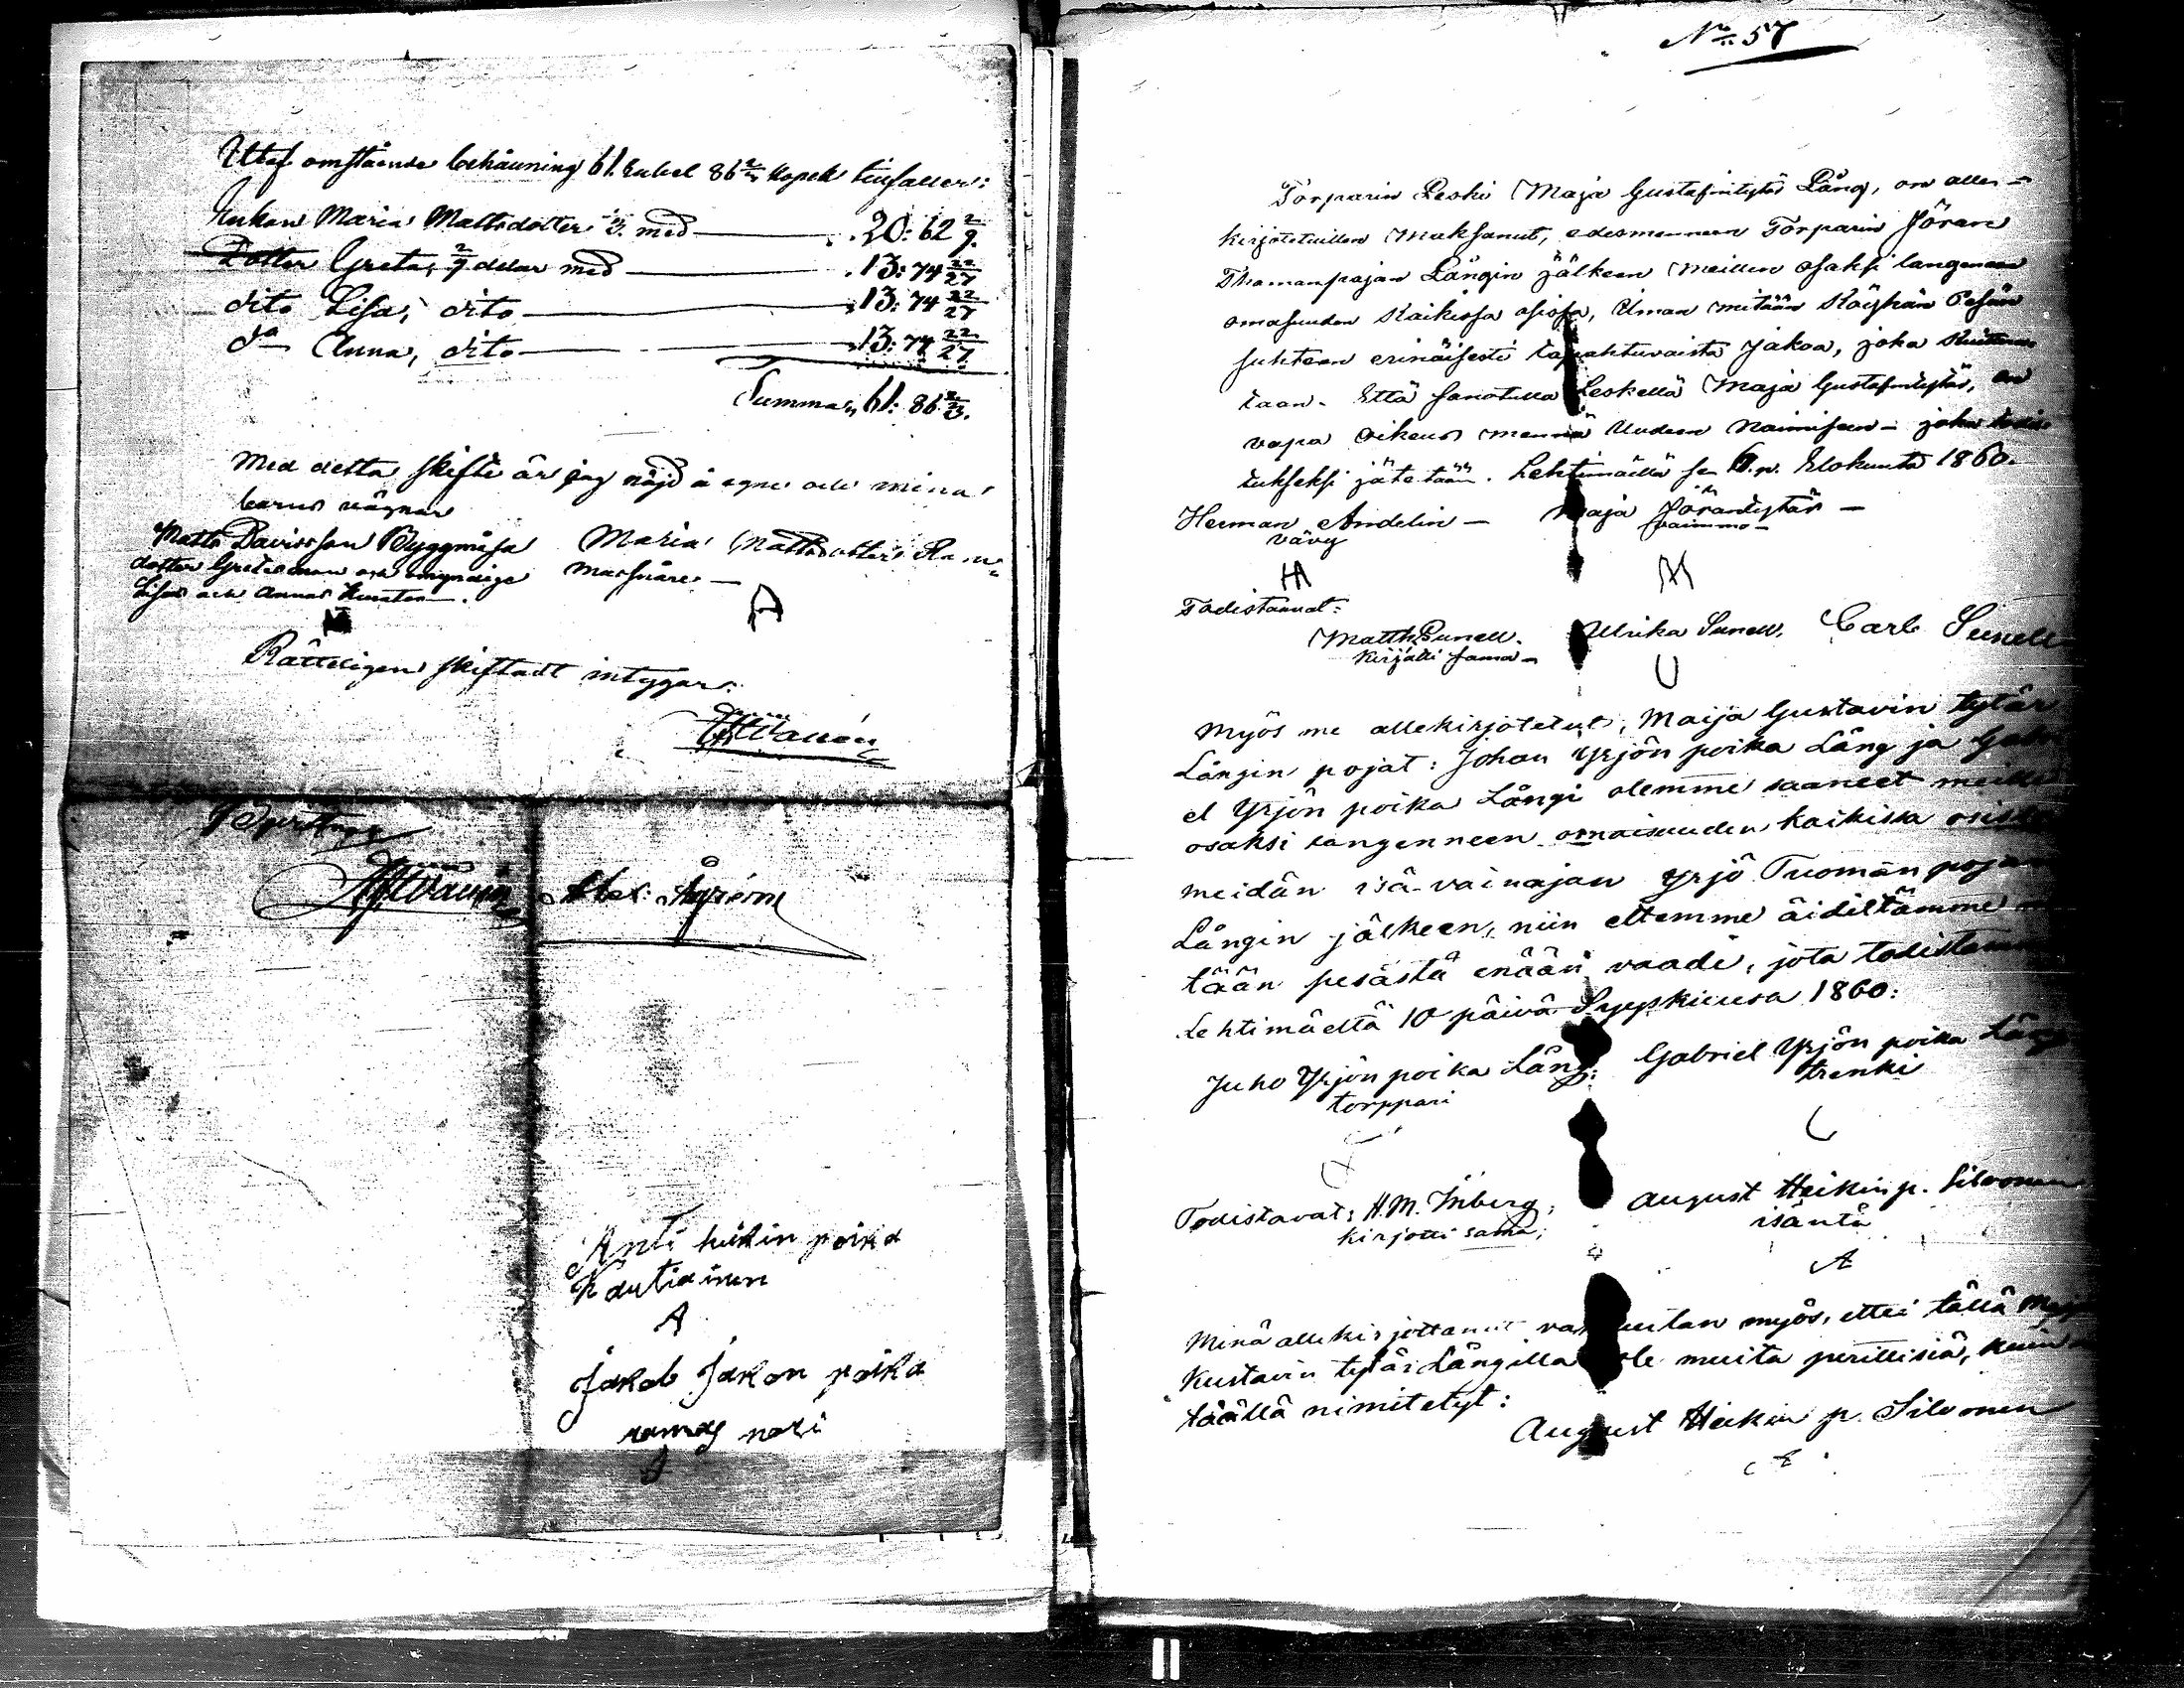 Utaf omstående behållning 61 Rubel 86 2/3 kopek tillfaller:
Enkan Maria Mattsdotter 1/3 med 20: 62 2/9.
Dotter Greta, 2/9 delar med 13: 74 22/27
dito Lisa, dito 13: 74 22/27
do Anna, dito 13: 74 22/27
Summa 61: 86 2/3.
Med detta skifte är jag nöjd å egne och mina
barns vägnar
Matts Davidsson Byggmäsa
dotter Gretas man och omyndige
Lisas och Annas Kurator.
Maria Mattsdotter
Rätteligen skiftadt intygar:
Anti heikin poika
Kautiainen
A
Jakob Jakon poika
J
No 57
Torparin Leski Maja Gustafintytär Lång, on alle-
kirjotetuillen Maksanut, edesmenneen Torparin Jöran
Thomanpojan Långin jälkeen meillen osaksi langeneen
omasuuden Kaikissa osissa, ilman mitään Köyhän Pesän
suhteen erinäisesti tapahtuvaista jakoa, joka
taan. Että sanotulla Leskellä Maja Gustafintytär, on
vapa oikeus mennä Uudeen Naimiseen - joka todis-
tukseksi jätetään. Lehtimäellä se 6. p. Elokuuta 1860.
Herman Andelin - Maja Jörantytär -
vävy vaimmo -
HA M
Todistanut:
Matth Sunell. Ulrika Sunell. Carl Sunell
Kirjotti sama - U
Myös me allekirjotetut, Maija Gustavin tytär
Långin pojat: Johan Yrjön poika Lång ja Gabri
el Yrjön poika Långi olemme saaneet meille
osaksi langenneen omaisuuden kaikissa osissa
meidän isä-vainajan Yrjö Tuoman pojan
Långin jälkeen, niin ettemme äidiltämme mi
tään pesästä enään vaadi, jota todistamme
Lehtimäeltä 10 päivä Syyskuusa 1860:
Juho Yrjön poika Lång: Gabriel Yrjön poika Lång
torppari trenki
Todistavat: H. M. Inberg, August Heikin p. Silvonen
kirjotti sama; isäntä
A
Minä allekirjottanut vakuutan myös, ettei tällä Maija
Kustavin tytär Långilla ole muita perillisiä, kuin
täällä nimitetyt:
August Heikin p. Silvonen